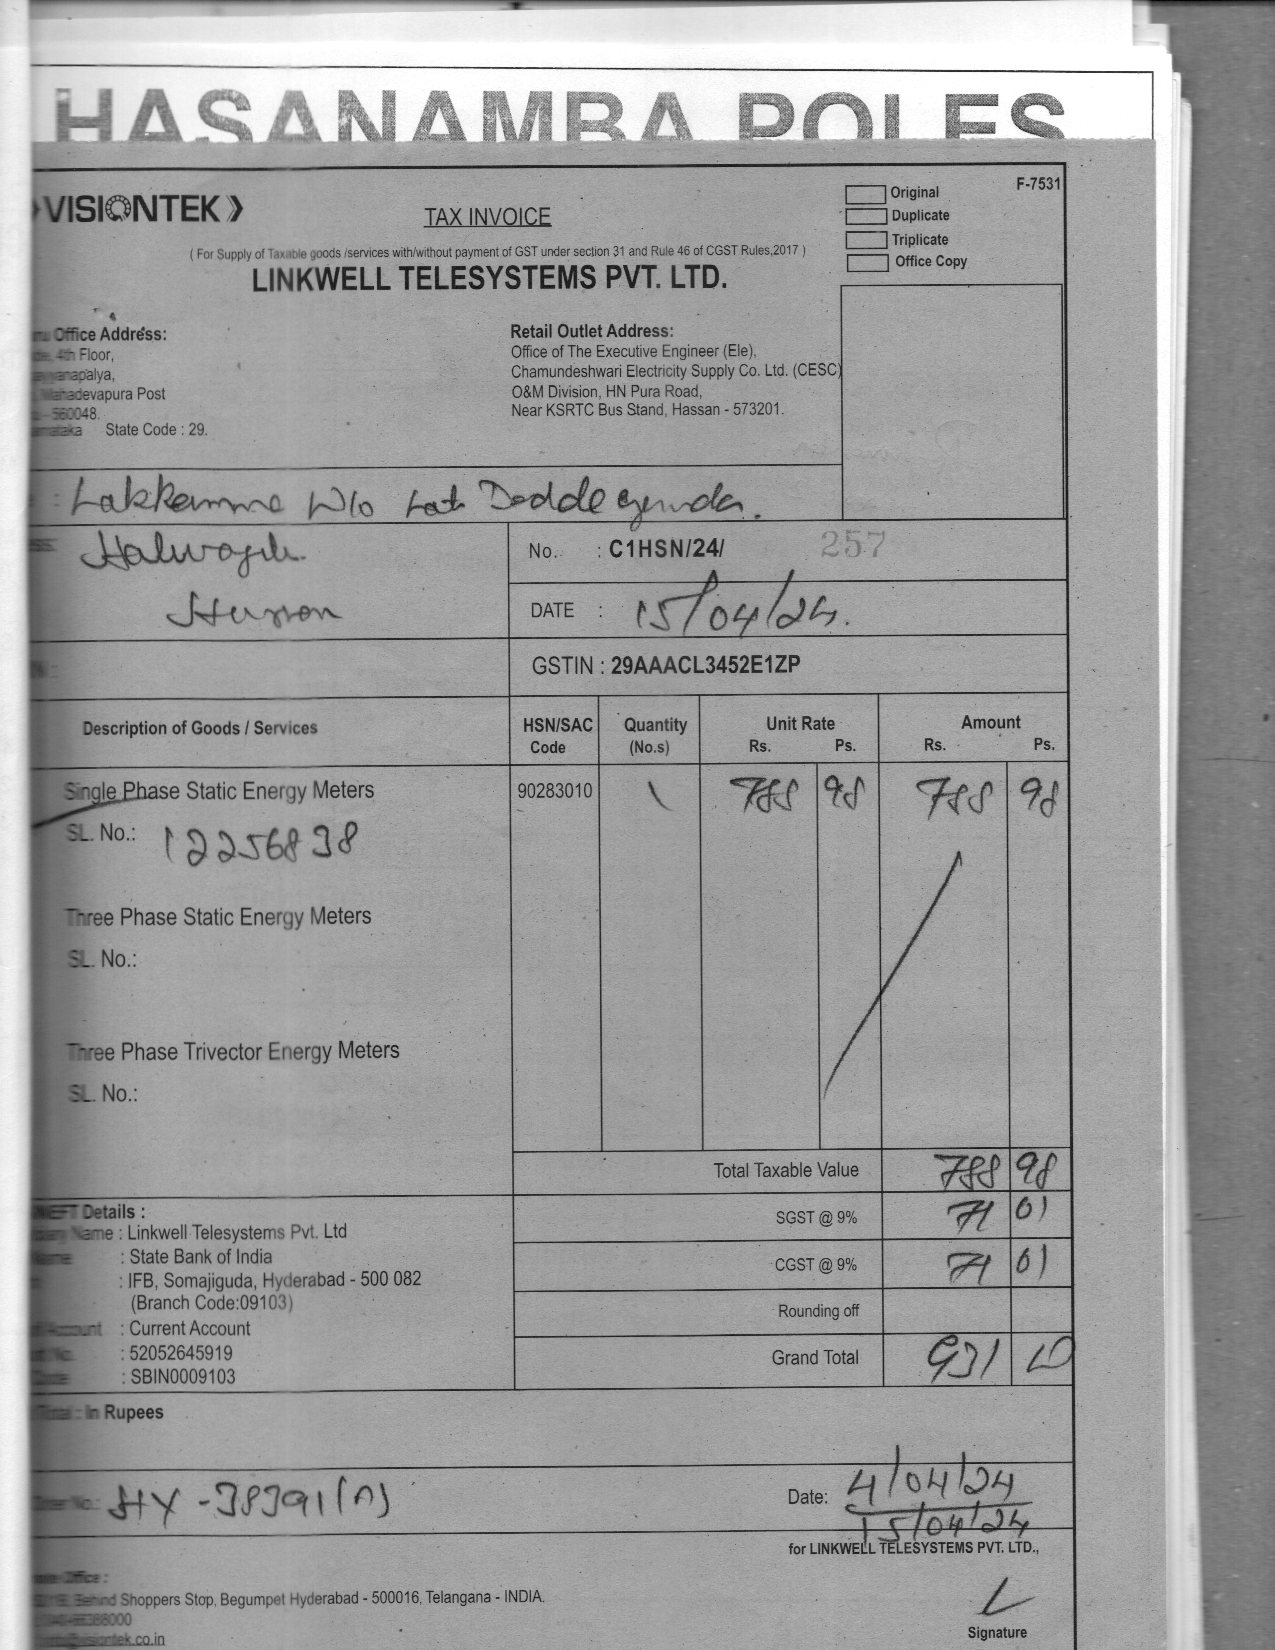 HASANAMBA POLES
VISIONTEK
TAX INVOICE
F-7531
Original
Duplicate
Triplicate
Office Copy
( For Supply of Taxable goods /services with/without payment of GST under section 31 and Rule 46 of CGST Rules,2017 )
LINKWELL TELESYSTEMS PVT. LTD.
Office Address:
4th Floor,
Mahadevapura Post
- 560048.
State Code : 29.
Retail Outlet Address:
Office of The Executive Engineer (Ele),
Chamundeshwari Electricity Supply Co. Ltd. (CESC)
O&M Division, HN Pura Road,
Near KSRTC Bus Stand, Hassan - 573201.
: Lakkamma W/o Late Doddegowda.
No. : C1HSN/24/ 257
DATE : 15/04/24.
GSTIN : 29AAACL3452E1ZP
Description of Goods / Services HSN/SAC Code Quantity (No.s) Unit Rate Rs. Ps. Amount Rs. Ps.
Single Phase Static Energy Meters 90283010 1 788 98 788 98
SL. No.: 12256838
Three Phase Static Energy Meters
SL. No.:
Three Phase Trivector Energy Meters
SL. No.:
Total Taxable Value 788 98
SGST @ 9% 71 01
CGST @ 9% 71 01
Rounding off
Grand Total 931 00
Details :
Name : Linkwell Telesystems Pvt. Ltd
: State Bank of India
: IFB, Somajiguda, Hyderabad - 500 082
(Branch Code:09103)
Account : Current Account
: 52052645919
: SBIN0009103
: In Rupees
No.: HY -38391(N)
Date: 4/04/24
15/04/24
for LINKWELL TELESYSTEMS PVT. LTD.,
Office :
Behind Shoppers Stop, Begumpet Hyderabad - 500016, Telangana - INDIA.
visiontek.co.in
Signature